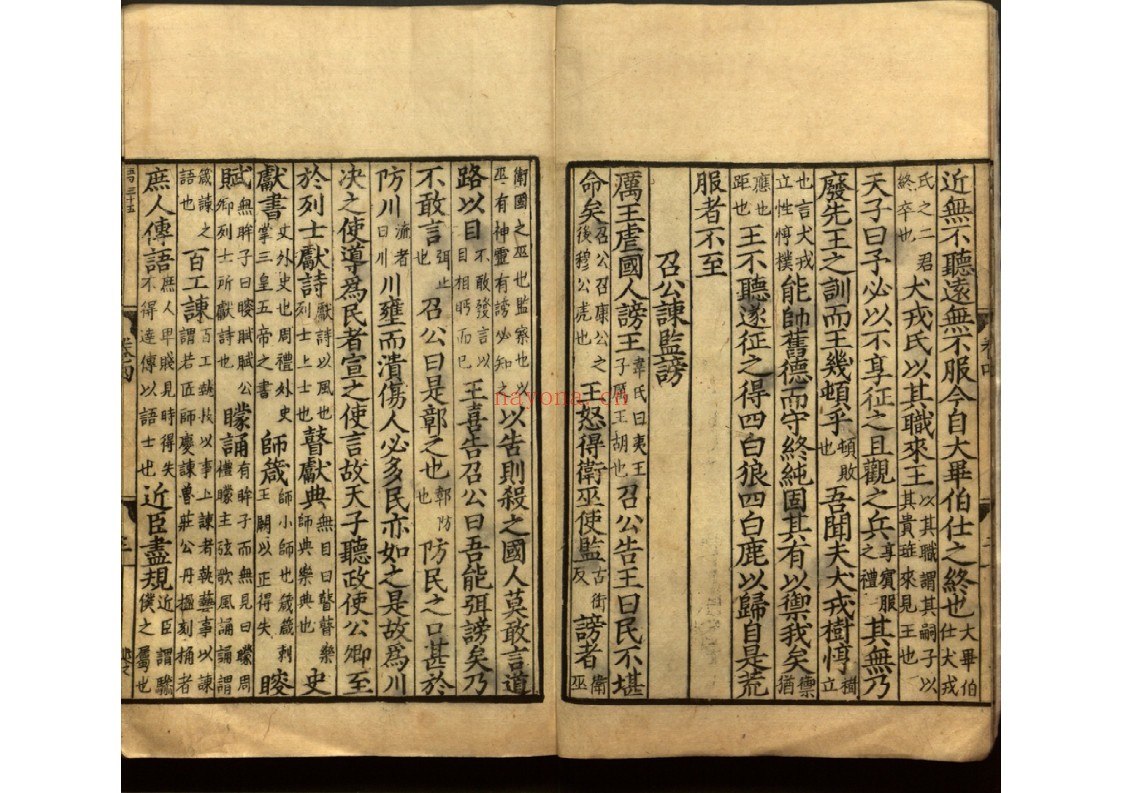 近無不聽遠無不服今自大畢伯仕之終也大畢伯仕犬戎
氏之二君終卒也犬戎氏以其職來王以其職謂其嗣子以其貴寶來見王也
天子曰予必以不享征之且觀之兵享賓服之禮其無乃
廢先王之訓而王幾頓乎頓敗也吾聞夫犬戎樹惇樹立
也言犬戎立性惇樸能帥舊德而守終純固其有以禦我矣禦猶
應也距也王不聽遂征之得四白狼四白鹿以歸自是荒
服者不至
召公諫監謗
厲王虐國人謗王韋氏曰夷王子厲王胡也召公告王曰民不堪
命矣召公召康公之後穆公虎也王怒得衛巫使監古銜反謗者衛巫
衛國之巫也監察也以巫有神靈有謗必知之以告則殺之國人莫敢言道
路以目不敢發言以目相眄而已王喜告召公曰吾能弭謗矣乃
不敢言弭止也召公曰是鄣之也鄣防也防民之口甚於
防川流者曰川川壅而潰傷人必多民亦如之是故為川
决之使導為民者宣之使言故天子聽政使公卿至
於列士獻詩獻詩以風也列士上士也瞽獻典無目曰瞽瞽樂師典樂典也史
獻書史外史也周禮外史掌三皇五帝之書師箴師小師也箴箴刺王闕以正得失瞍
賦無眸子曰瞍賦賦公卿列士所獻詩也矇誦有眸子而無見曰矇周禮矇主弦歌風誦誦謂
箴諫之語也百工諫百工執技以事上諫者執藝事以諫謂若匠師慶諫魯莊公丹楹刻桷者
庶人傳語庶人卑賤見時得失不得達傳以語士也近臣盡規近臣謂驂僕之屬也
nayona.cn